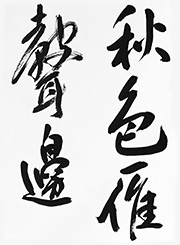 秋色雁
聲邊